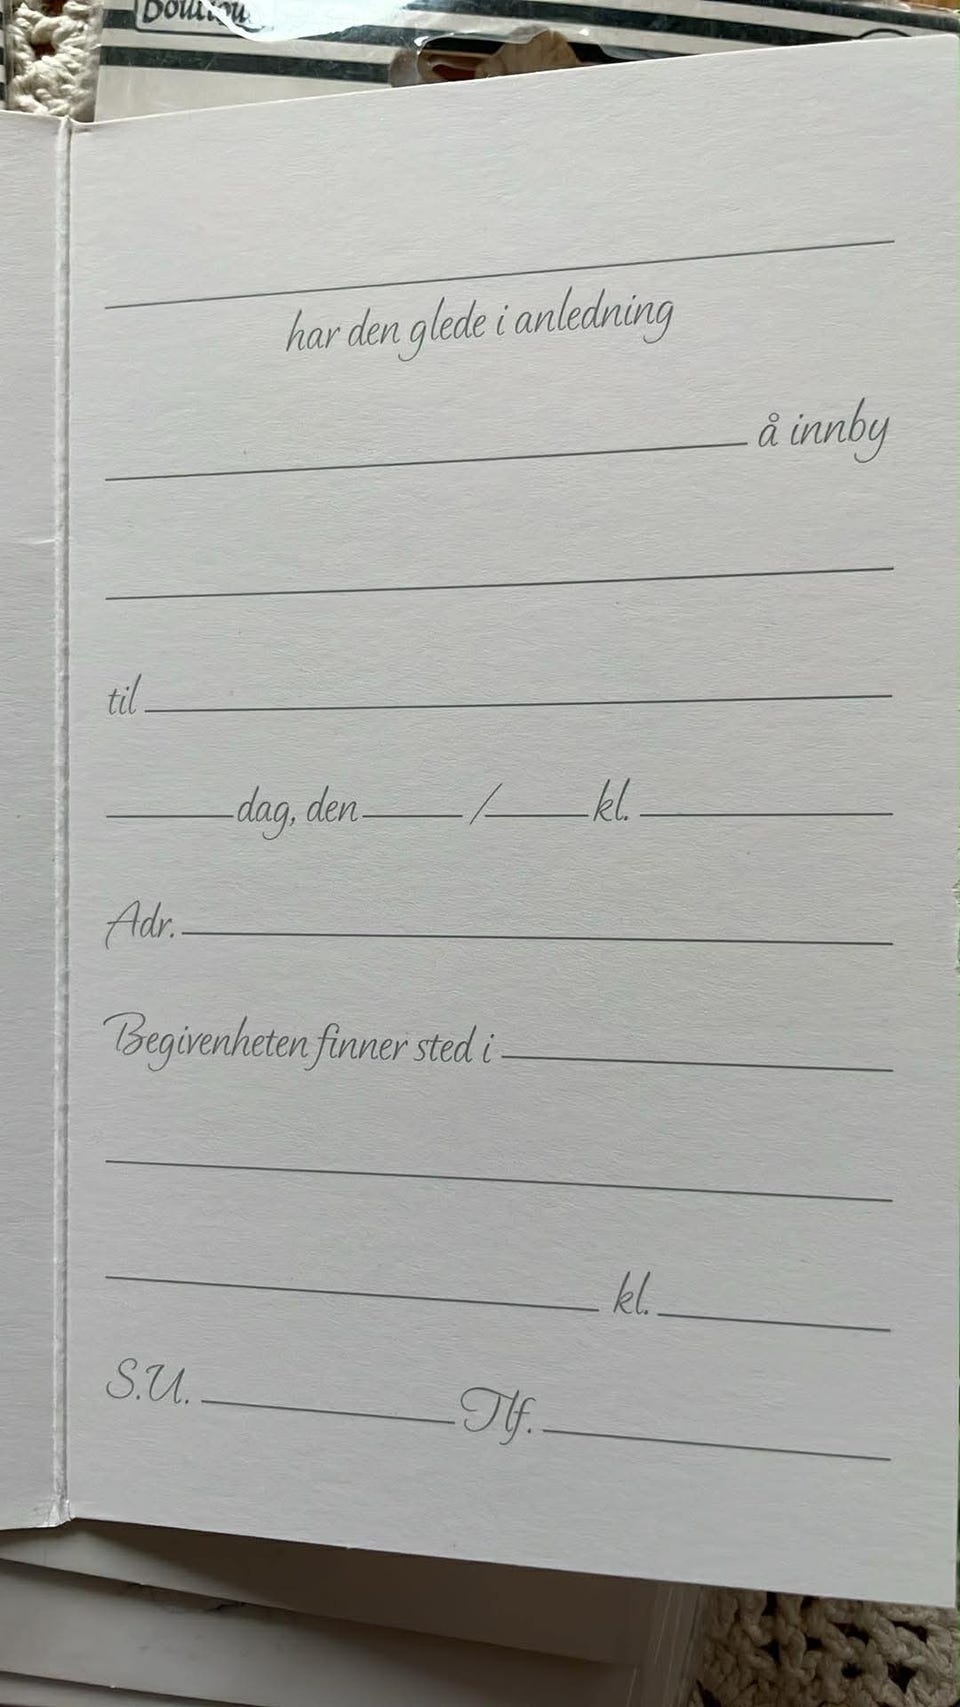 har den glede i anledning
å innby
til
dag, den / kl.
Adr.
Begivenheten finner sted i
kl.
S.U. Tlf.